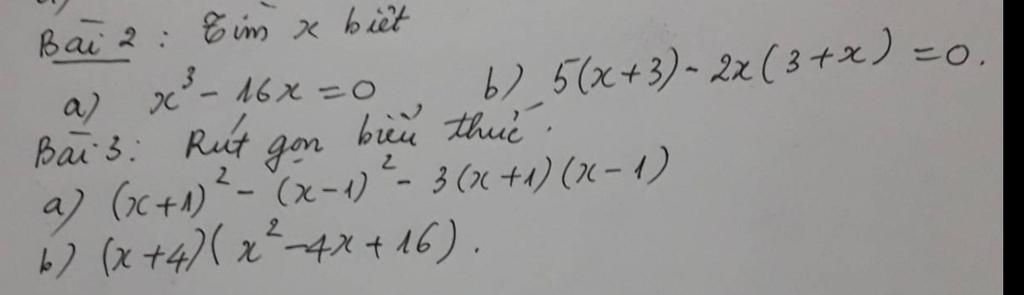 Bài 2 : Tìm x biết
a) x³ - 16x = 0 b) 5(x+3) - 2x(3+x) = 0.
Bài 3: Rút gọn biểu thức.
a) (x+1)² - (x-1)² - 3(x+1)(x-1)
b) (x+4)(x² - 4x + 16).